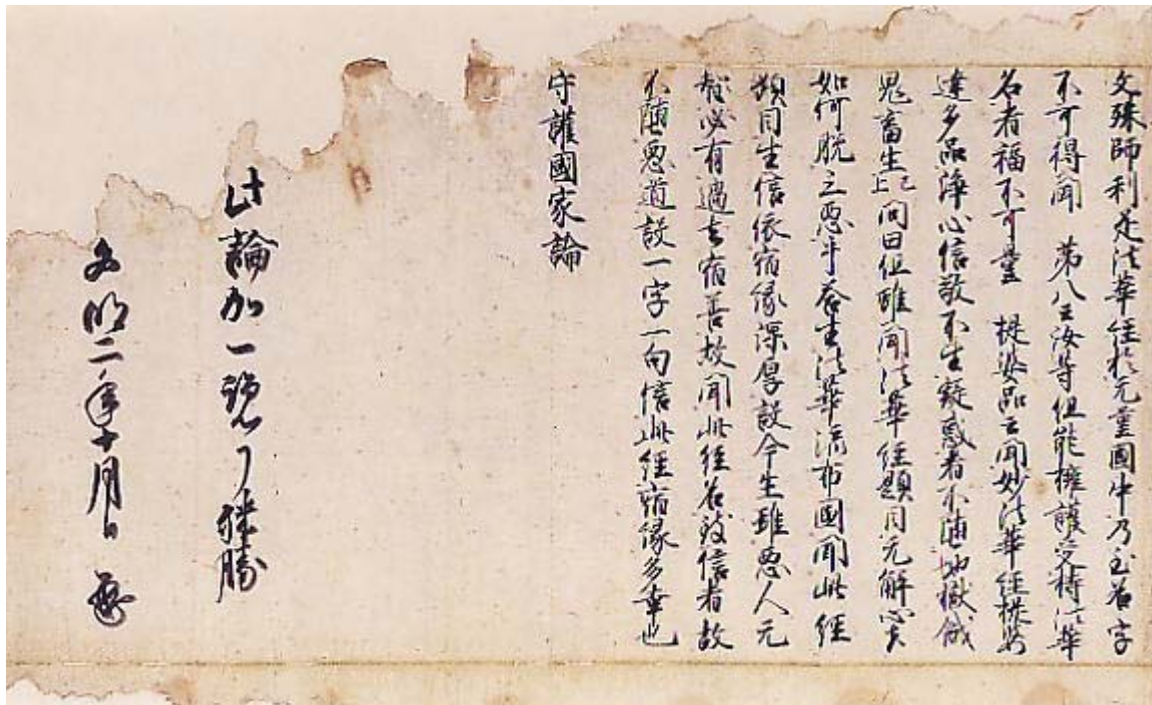 文殊師利是法華経於无量國中乃至名字
不可得聞　第八云汝等但能擁護受持法華
名者福不可量　提婆品云聞妙法華経提婆
達多品浄心信敬不生疑惑者不堕地獄餓
鬼畜生已上問曰但雖聞法華経題目无解心
如何脱三悪乎答生法華流布國聞此経
題目生信依宿縁深厚設今生雖悪人无
智必有過去宿善故聞此経名致信者故
不堕悪道設一字一句信此経宿縁多幸也
守護國家論
此論加一覧了殊勝
文明二年十月日